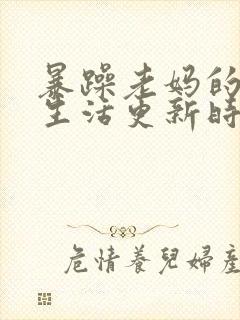 暴躁老妈的
生活更新时
危情養兒婦産